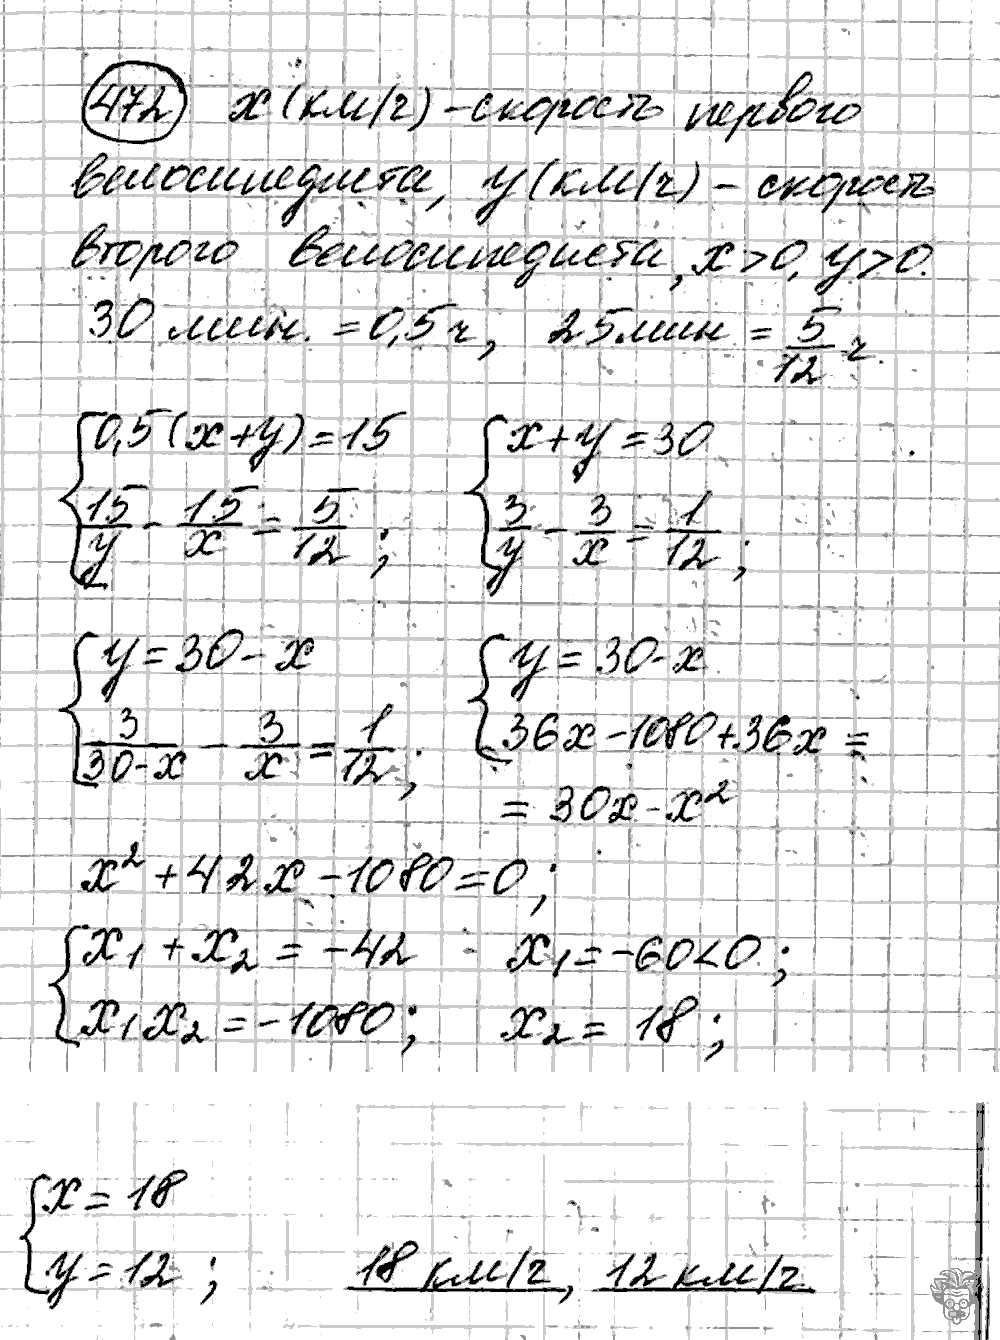 472 x (км/ч) – скорость первого
велосипедиста, y (км/ч) – скорость
второго велосипедиста, x>0, y>0.
30 мин. = 0,5 ч, 25 мин = 5/12 ч.
{ 0,5(x+y)=15 { x+y=30
15/y - 15/x = 5/12 ; 3/y - 3/x = 1/12 ;
{ y=30-x { y=30-x
3/(30-x) - 3/x = 1/12 ; 36x-1080+36x =
= 30x-x²
x²+42x-1080=0 ;
{ x₁+x₂=-42 x₁=-60<0 ;
x₁x₂=-1080 ; x₂=18 ;
{ x=18
y=12 ; 18 км/ч, 12 км/ч